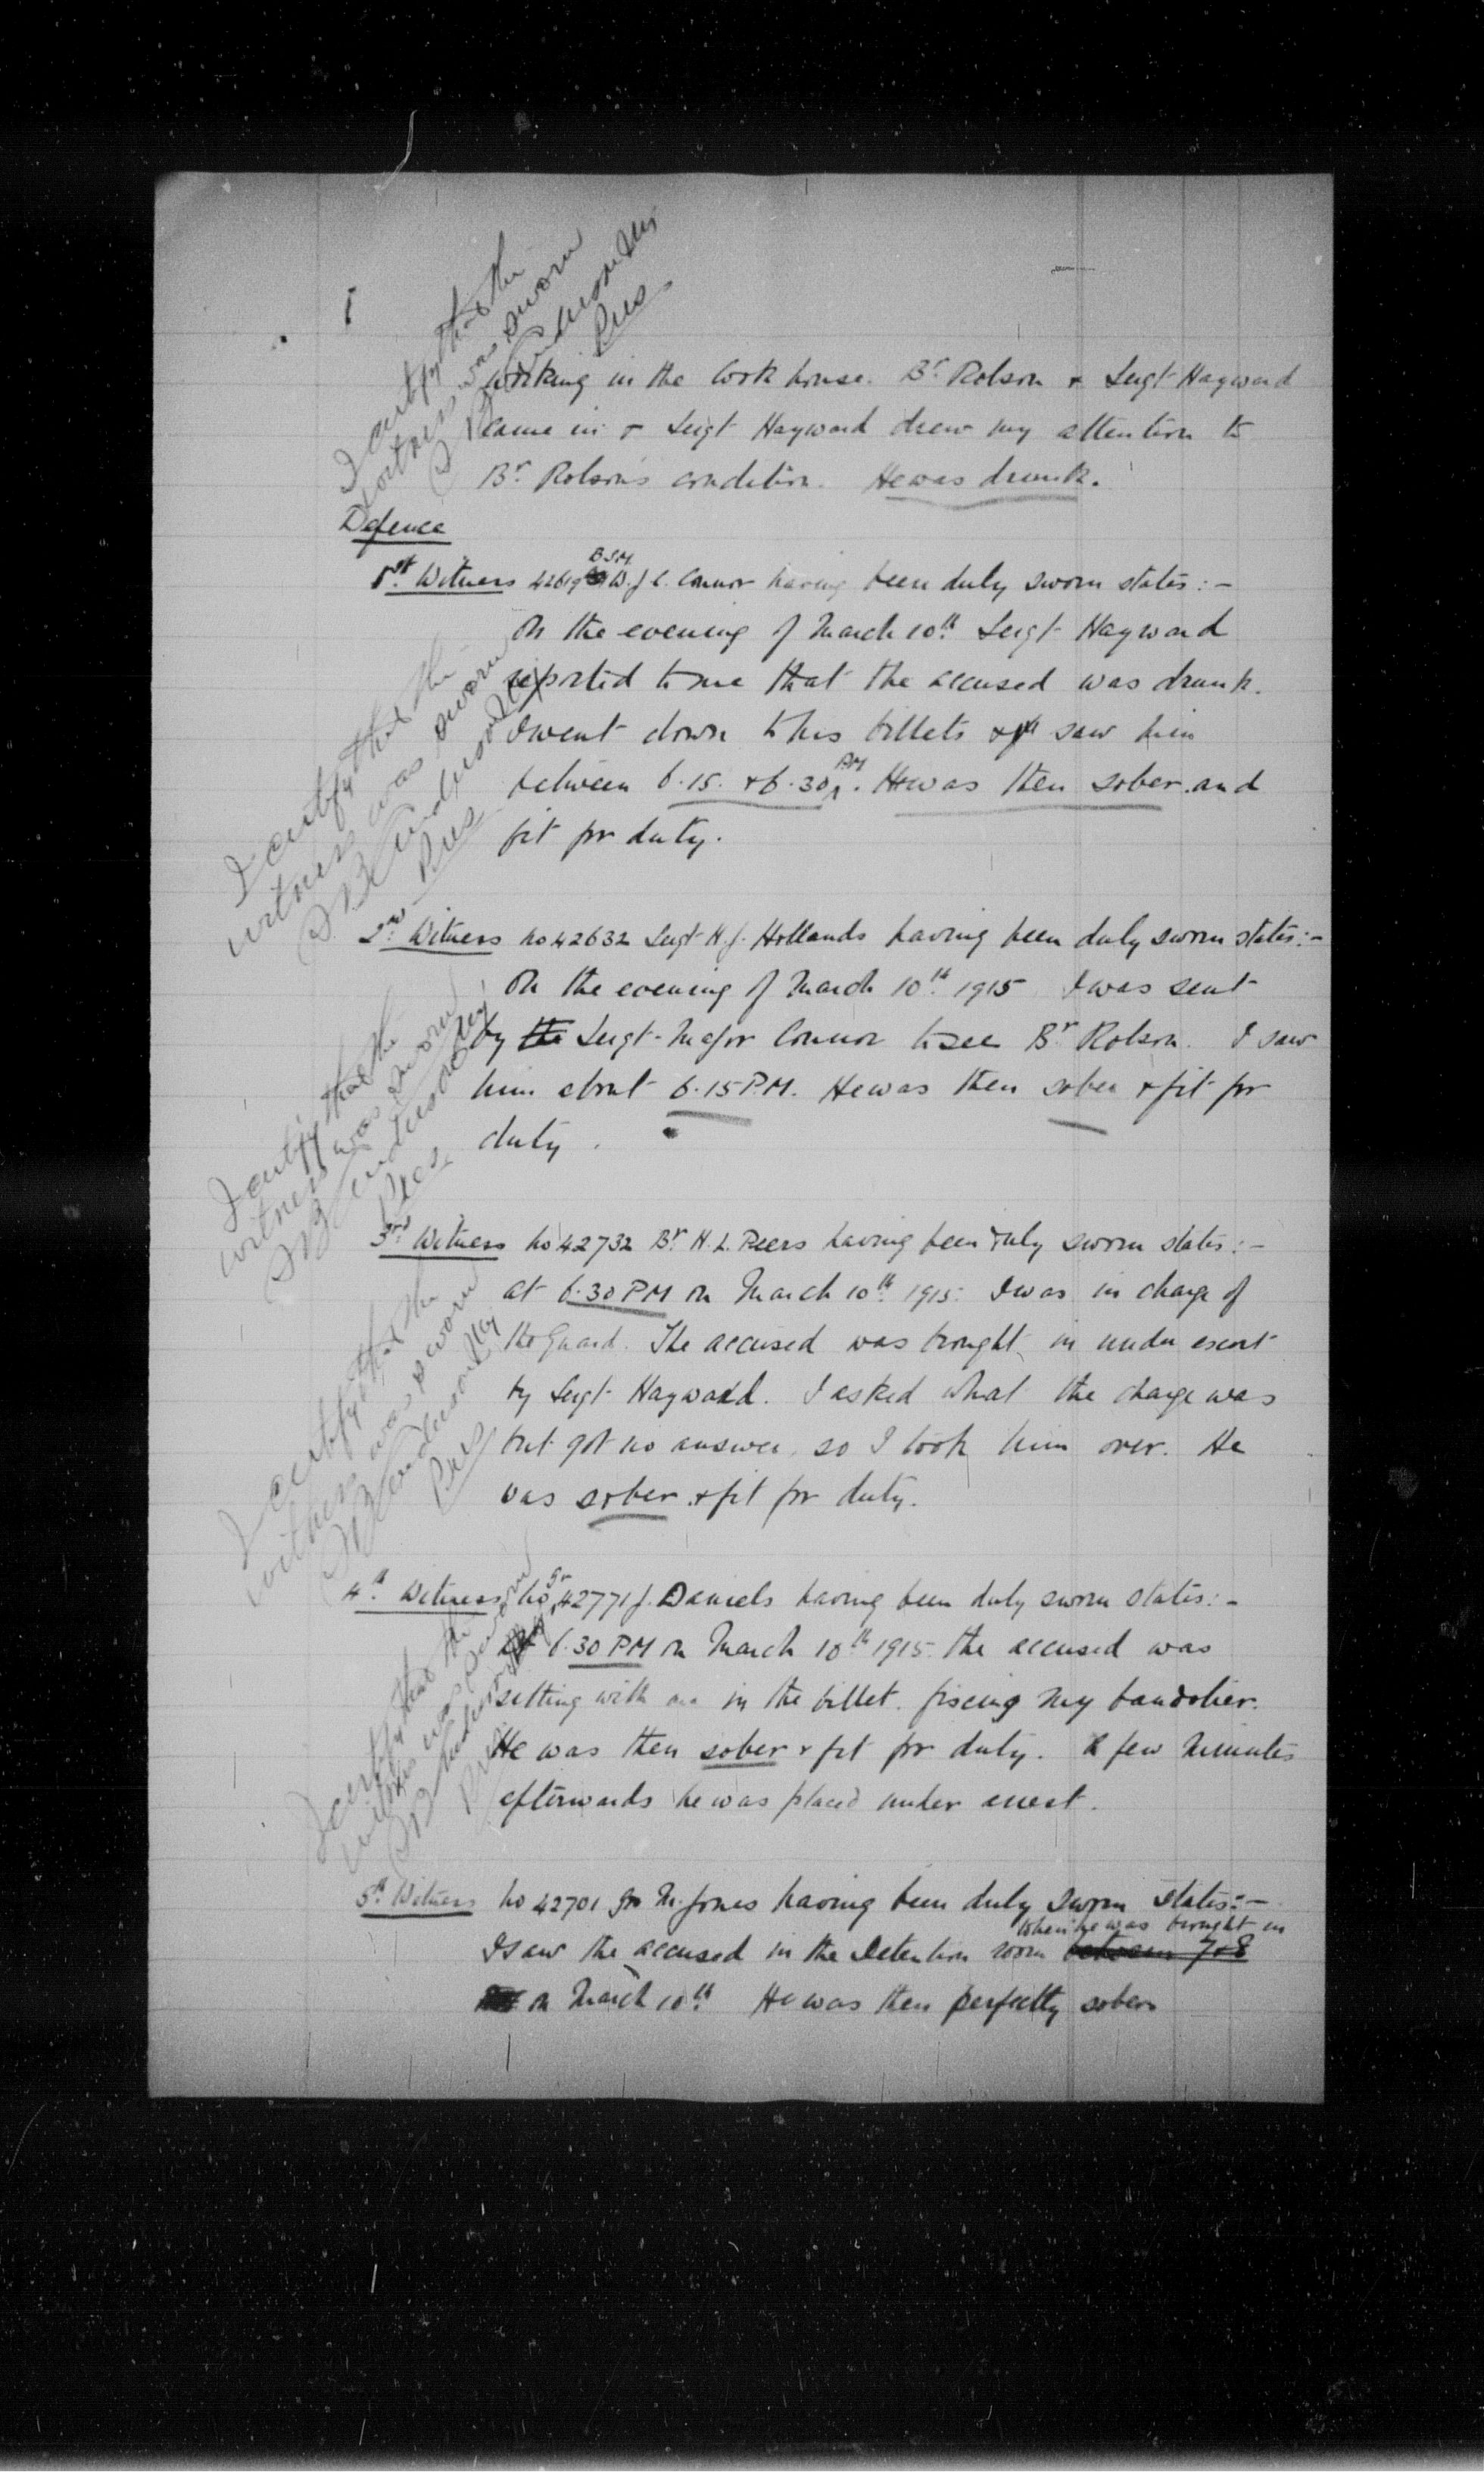 working in the Cook house. Br Robson & Sergt Hayward
came in & Sergt Hayward drew my attention to
Br Robson's condition. He was drunk.
Defence
1st Witness 42619 BSM W.J.C. Connor having been duly sworn states:-
On the evening of March 10th Sergt Hayward
reported to me that the accused was drunk.
I went down to his billets & saw him
between 6.15. & 6.30 PM. He was then sober and
fit for duty.
2nd Witness No 42632 Sergt H.J. Hollands having been duly sworn states:-
On the evening of March 10th 1915 I was sent
by the Sergt-Major Connor to see Br Robson. I saw
him about 6.15 P.M. He was then sober & fit for
duty.
3rd Witness No 42732 Br H.L. Peers having been duly sworn states:-
at 6.30 PM on March 10th 1915. I was in charge of
the Guard. The accused was brought in under escort
by Sergt Hayward. I asked what the charge was
but got no answer, so I took him over. He
was sober & fit for duty.
4th Witness No Gr 42771 J. Daniels having been duly sworn states:-
At 6.30 PM on March 10th 1915. the accused was
sitting with me in the billet. fixing my bandolier.
He was then sober & fit for duty. A few minutes
afterwards he was placed under arrest.
5th Witness No 42701 Gr M. Jones having been duly sworn states:-
when he was brought in
I saw the accused in the Detention room between 7 & 8
on March 10th He was then perfectly sober
I certify that the
witness was sworn
Pres
I certify that the
witness was sworn
Pres
I certify that the
witness was sworn
Pres
I certify that the
witness was sworn
Pres
I certify that the
witness was sworn
Pres